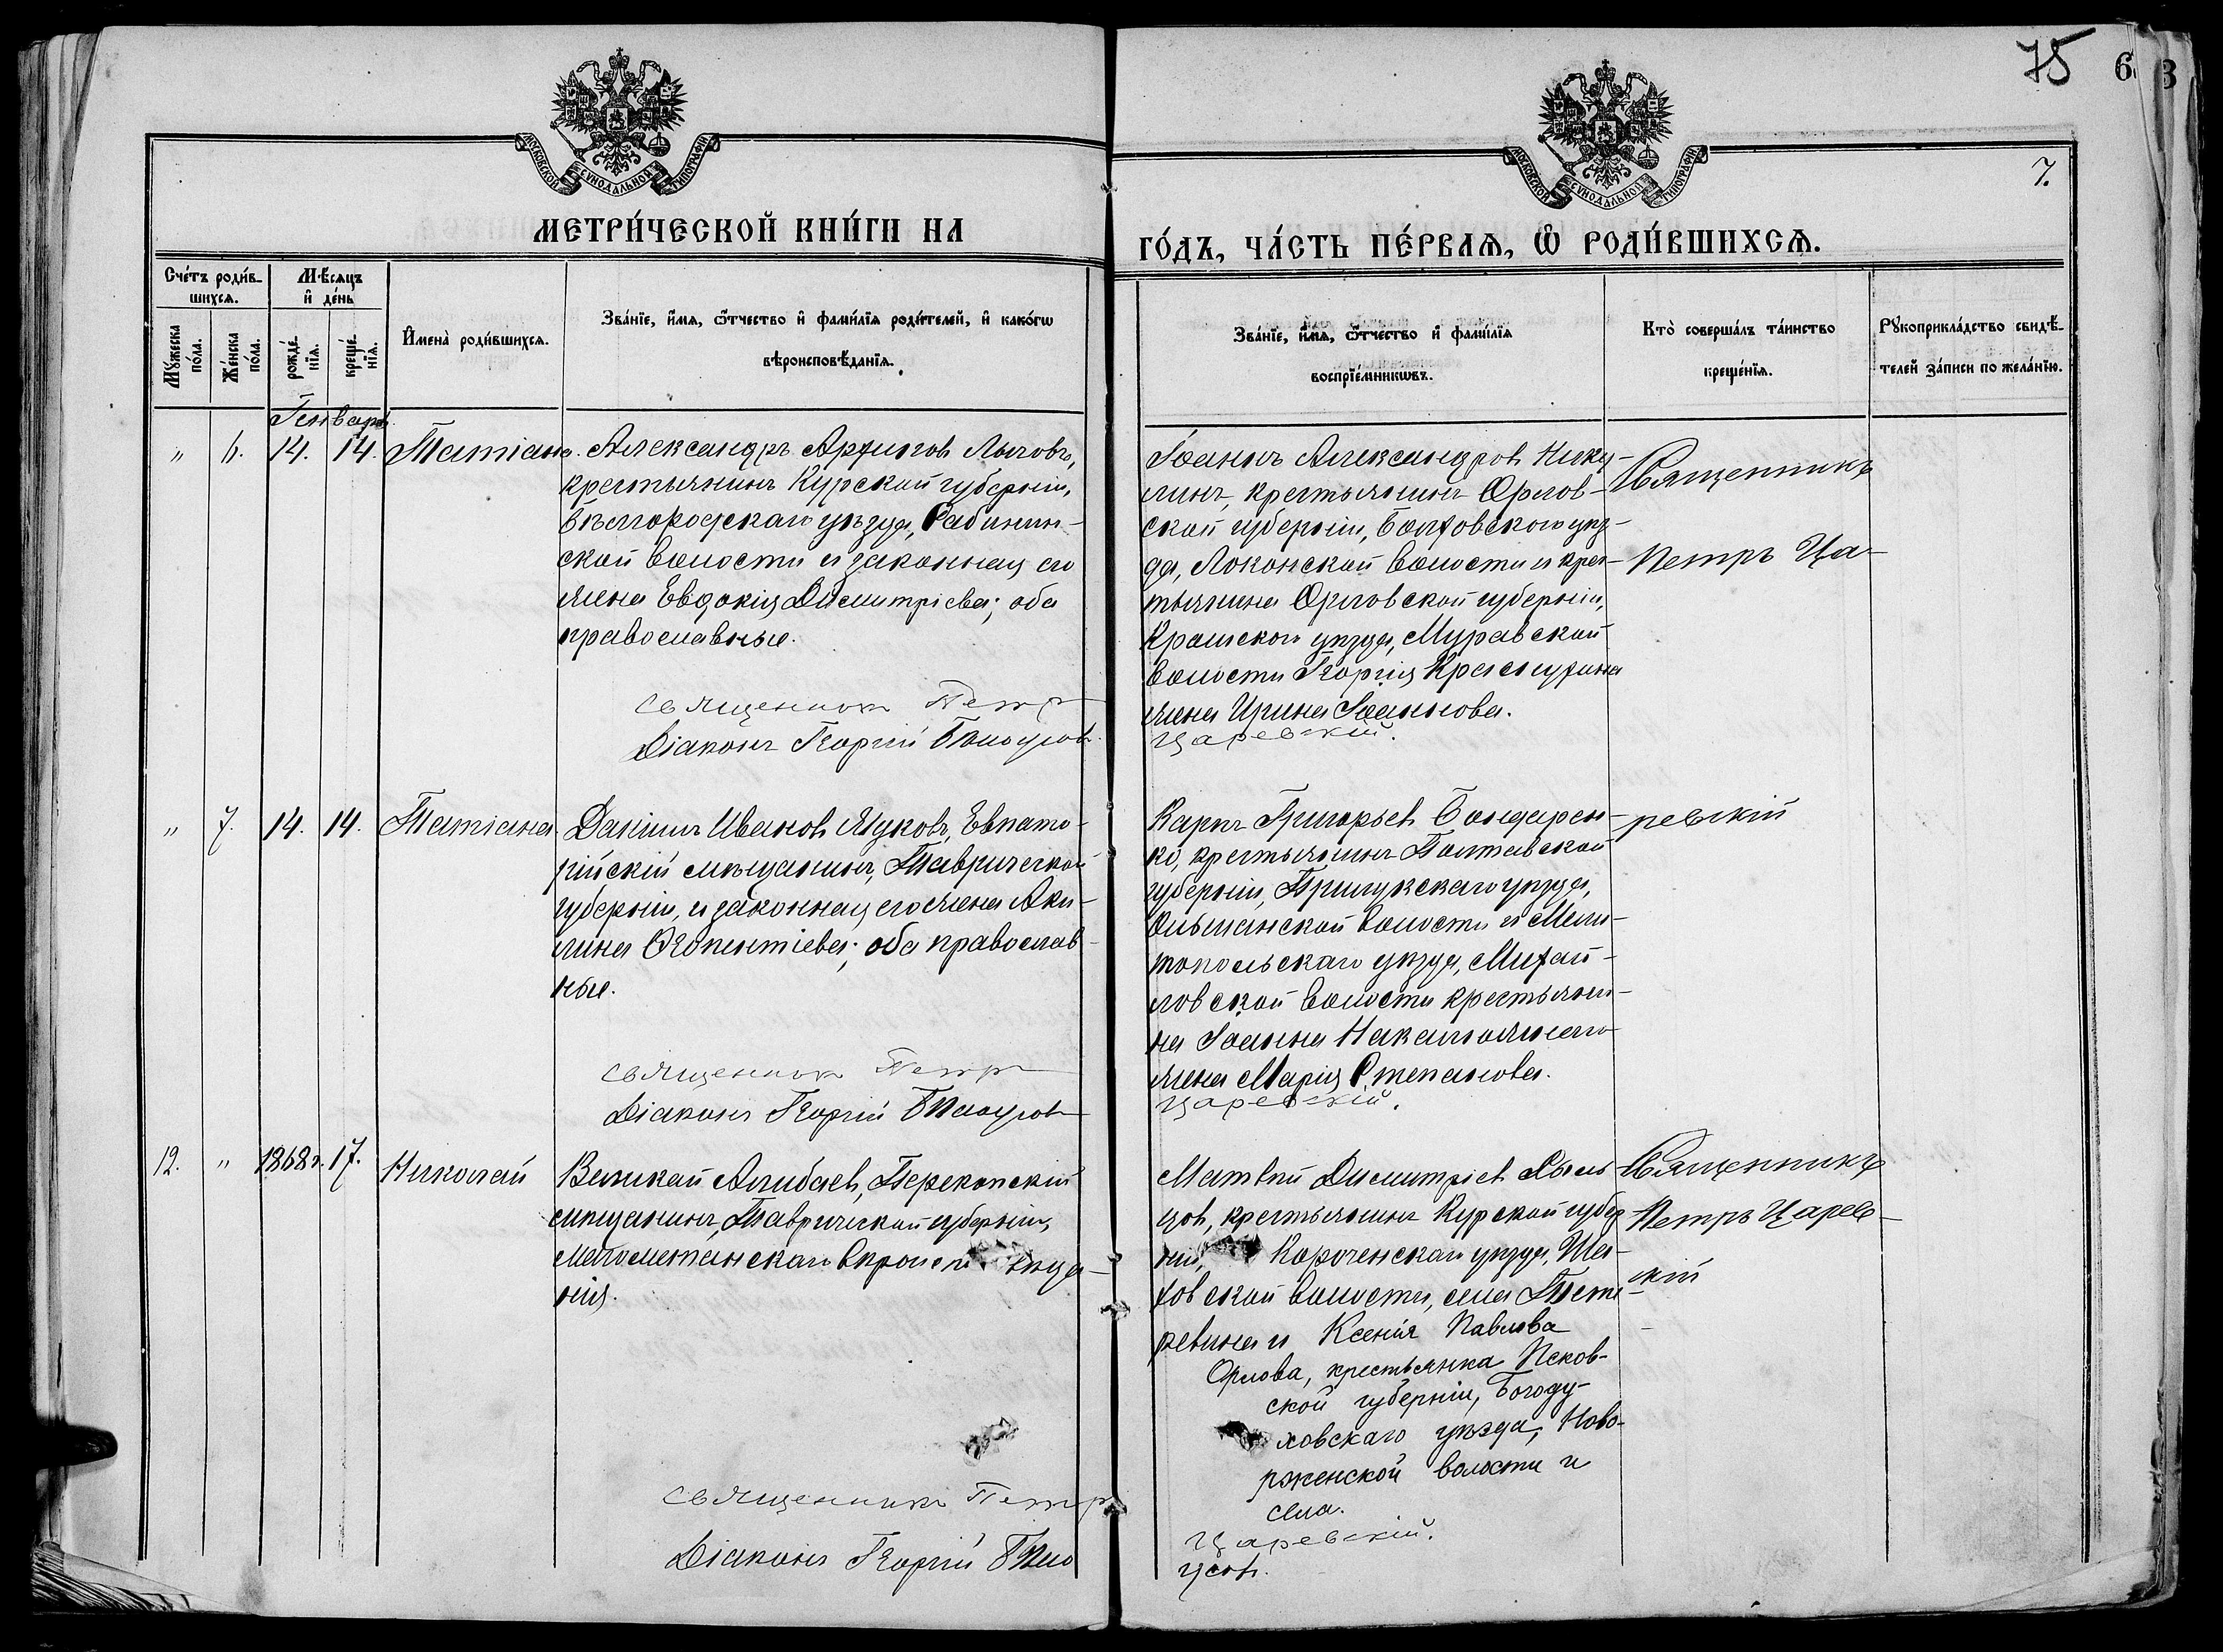 75
7.
МОСКОВСКОЙ СѴНОДАЛЬНОЙ ТИПОГРАФІИ
МОСКОВСКОЙ СѴНОДАЛЬНОЙ ТИПОГРАФІИ
МЕТРИ́ЧЕСКОЙ КНИ́ГИ НА
ГО́ДЪ, ЧА́СТЬ ПЕ́РВАѦ, Ѡ҆ РОДИ́ВШИХСѦ.
Сче́тъ роди́в-
шихсѧ.
Мꙋ́жеска по́ла.
Же́нска по́ла.
Мѣ́сѧцъ
и҆ де́нь
рожде́нїѧ.
креще́нїѧ.
И҆мена̀ роди́вшихсѧ.
Зва́нїе, и҆́мѧ, ѻ҆́тчество и҆ фами́лїѧ роди́телей, и҆ како́гѡ
вѣроисповѣ́данїѧ.
Зва́нїе, и҆́мѧ, ѻ҆́тчество и҆ фами́лїѧ
воспрїе́мникѡвъ.
Кто̀ соверша́лъ та́инство
креще́нїѧ.
Рꙋкоприкла́дство свидѣ́-
телей за́писи по жела́нїю.
Генварь
" 6. 14. 14. Татіана.
Александръ Архиповъ Лычовъ,
крестьянинъ Курской губерніи,
Бѣлгородскаго уѣзда, Сабынин-
ской волости и законная его
жена Евдокія Димитріева; оба
православные.
Священник Петр
Діаконъ Георгій
Іоаннъ Александровъ Нику-
линъ, крестьянинъ Орлов-
ской губерніи, Болховского уѣз-
да, Локонской волости и крес-
тьянина Орловской губерніи,
Кромского уѣзда, Муравской
волости Георгія
жена Ирина Іоаннова.
Царевскій.
Священникъ
Петръ Ца-
" 7. 14. 14. Татіана
Даніилъ Ивановъ Жуковъ, Евпато-
рійскій мѣщанинъ, Таврической
губерніи, и законная его жена Аки-
лина Ѳеопентіева; оба православ-
ные.
Священник Петр
Діаконъ Георгій
Карпъ Григорьевъ Бондарен-
ко, крестьянинъ Полтавской
губерніи, Прилукскаго уѣзда,
Ольшанской волости и Мели-
топольскаго уѣзда, Михай-
ловской волости крестьяни-
на Іоанна
жена Марія Степанова.
Царевскій.
ревскій
12. " 1868г. 17. Николай
Великай Алибаевъ, Перекопскій
мѣщанинъ, Таврической губерніи,
магометанскаго вѣроисп вѣда-
нія.
Священникъ Петр
Діаконъ Георгій
Матвѣй Димитріевъ
крестьянинъ Курской губер-
ніи, Короченскаго уѣзда, Ша-
ховской волости, села Тете-
ревина и Ксенія Павлова
Орлова, крестьянка Псков-
ской губерніи, Богоду-
ховскаго уѣзда, Ново-
рженской волости и
села.
Царевскій.
Священникъ
Петръ Царев-
скій